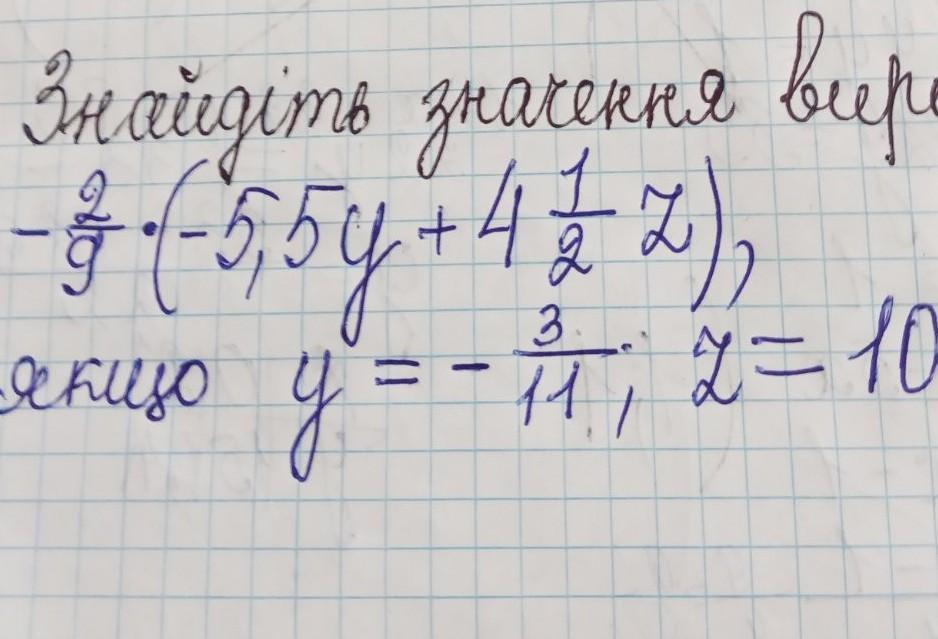 Знайдіть значення
-2/9·(-5,5y+4 1/2 z),
якщо y = -3/11; z = 10